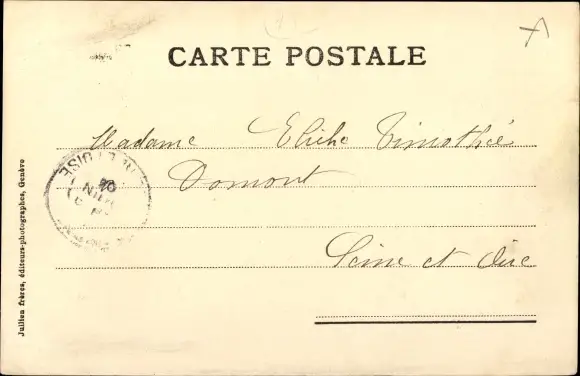 CARTE POSTALE
Madame Eliche Timothée
Domont
Seine et Oise
ET OISE
JUIN
Jullien frères, éditeurs-photographes, Genève